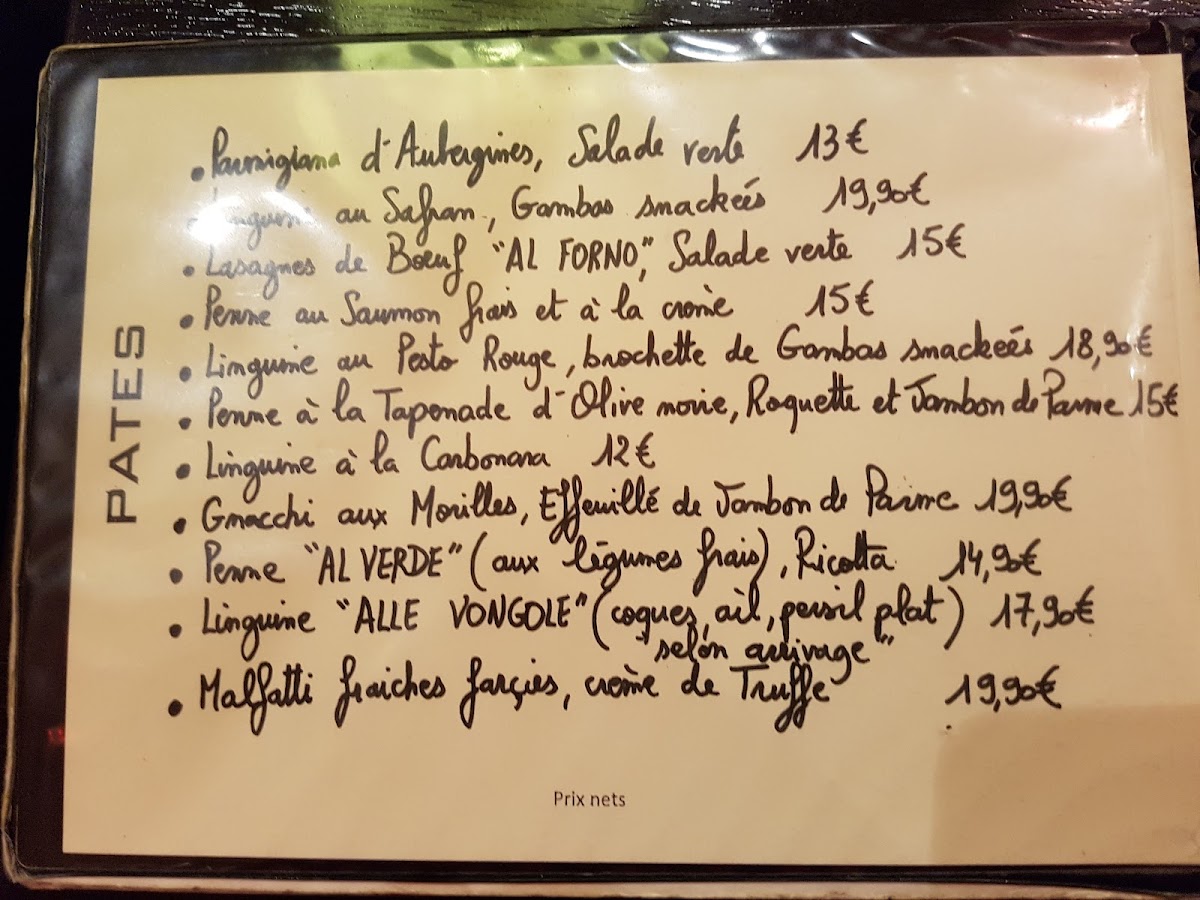 PATES
• Parmigiana d'Aubergines, Salade verte 13€
• Linguine au Safran, Gambas smackées 19,90€
• Lasagnes de Bœuf "AL FORNO", Salade verte 15€
• Penne au Saumon frais et à la crème 15€
• Linguine au Pesto Rouge, brochette de Gambas smackées 18,90€
• Penne à la Taponade d'Olive noire, Roquette et Jambon de Parme 15€
• Linguine à la Carbonara 12€
• Gnocchi aux Morilles, Effeuillé de Jambon de Parme 19,90€
• Penne "AL VERDE" (aux légumes frais), Ricotta 14,90€
• Linguine "ALLE VONGOLE" (coques, ail, persil plat) 17,90€
"selon arrivage"
• Malfatti fraiches farçies, crème de Truffe 19,90€
Prix nets